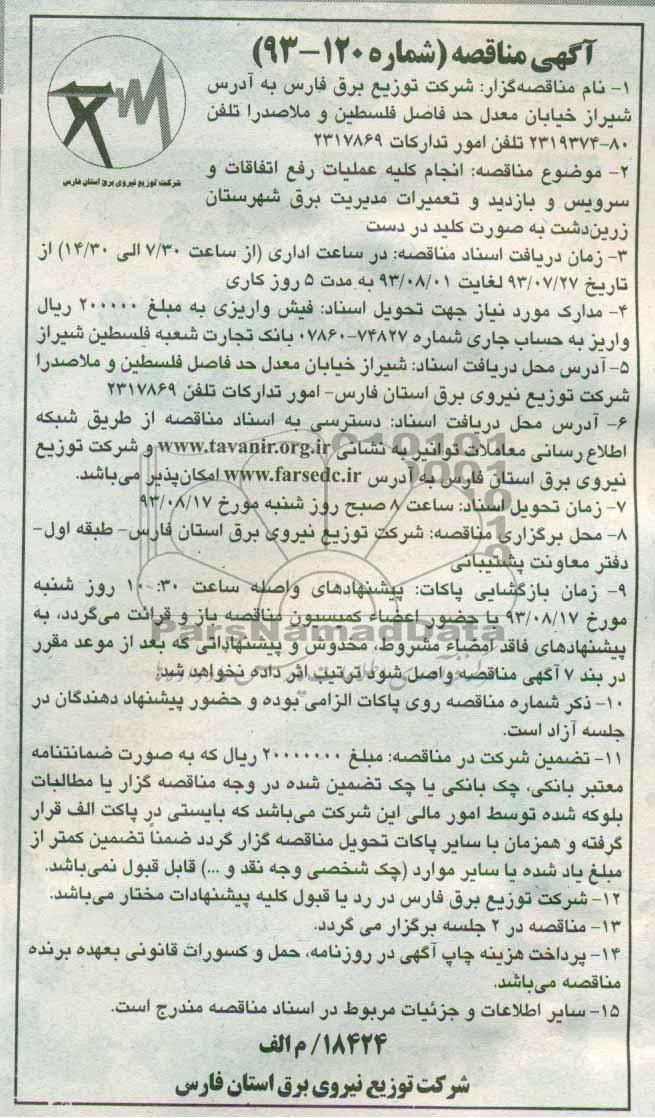 آگهی مناقصه (شماره ۱۲۰-۹۳)
۱- نام مناقصه‌گزار: شرکت توزیع برق فارس به آدرس
شیراز خیابان معدل حد فاصل فلسطین و ملاصدرا تلفن
۸۰-۲۳۱۹۳۷۴ تلفن امور تدارکات ۲۳۱۷۸۶۹
شرکت توزیع نیروی برق استان فارس
۲- موضوع مناقصه: انجام کلیه عملیات رفع اتفاقات و
سرویس و بازدید و تعمیرات مدیریت برق شهرستان
زرین‌دشت به صورت کلید در دست
۳- زمان دریافت اسناد مناقصه: در ساعت اداری (از ساعت ۷/۳۰ الی ۱۴/۳۰) از
تاریخ ۹۳/۰۷/۲۷ لغایت ۹۳/۰۸/۰۱ به مدت ۵ روز کاری
۴- مدارک مورد نیاز جهت تحویل اسناد: فیش واریزی به مبلغ ۲۰۰۰۰۰ ریال
واریز به حساب جاری شماره ۷۴۸۲۷-۰۷۸۶۰ بانک تجارت شعبه فلسطین شیراز
۵- آدرس محل دریافت اسناد: شیراز خیابان معدل حد فاصل فلسطین و ملاصدرا
شرکت توزیع نیروی برق استان فارس- امور تدارکات تلفن ۲۳۱۷۸۶۹
۶- آدرس محل دریافت اسناد: دسترسی به اسناد مناقصه از طریق شبکه
اطلاع رسانی معاملات توانیر به نشانی www.tavanir.org.ir و شرکت توزیع
نیروی برق استان فارس به آدرس www.farsedc.ir امکان‌پذیر می‌باشد.
۷- زمان تحویل اسناد: ساعت ۸ صبح روز شنبه مورخ ۹۳/۰۸/۱۷
۸- محل برگزاری مناقصه: شرکت توزیع نیروی برق استان فارس- طبقه اول-
دفتر معاونت پشتیبانی
۹- زمان بازگشایی پاکات: پیشنهادهای واصله ساعت ۱۰:۳۰ روز شنبه
مورخ ۹۳/۰۸/۱۷ با حضور اعضاء کمیسیون مناقصه باز و قرائت می‌گردد، به
ParsNamadData
پیشنهادهای فاقد امضاء مشروط، مخدوش و پیشنهاداتی که بعد از موعد مقرر
در بند ۷ آگهی مناقصه واصل شود ترتیب اثر داده نخواهد شد.
۱۰- ذکر شماره مناقصه روی پاکات الزامی بوده و حضور پیشنهاد دهندگان در
جلسه آزاد است.
۱۱- تضمین شرکت در مناقصه: مبلغ ۲۰۰۰۰۰۰۰ ریال که به صورت ضمانتنامه
معتبر بانکی، چک بانکی یا چک تضمین شده در وجه مناقصه گزار یا مطالبات
بلوکه شده توسط امور مالی این شرکت می‌باشد که بایستی در پاکت الف قرار
گرفته و همزمان با سایر پاکات تحویل مناقصه گزار گردد ضمناً تضمین کمتر از
مبلغ یاد شده یا سایر موارد (چک شخصی وجه نقد و ...) قابل قبول نمی‌باشد.
۱۲- شرکت توزیع برق فارس در رد یا قبول کلیه پیشنهادات مختار می‌باشد.
۱۳- مناقصه در ۲ جلسه برگزار می گردد.
۱۴- پرداخت هزینه چاپ آگهی در روزنامه، حمل و کسورات قانونی بعهده برنده
مناقصه می‌باشد.
۱۵- سایر اطلاعات و جزئیات مربوط در اسناد مناقصه مندرج است.
۱۸۴۲۴/ م الف
شرکت توزیع نیروی برق استان فارس